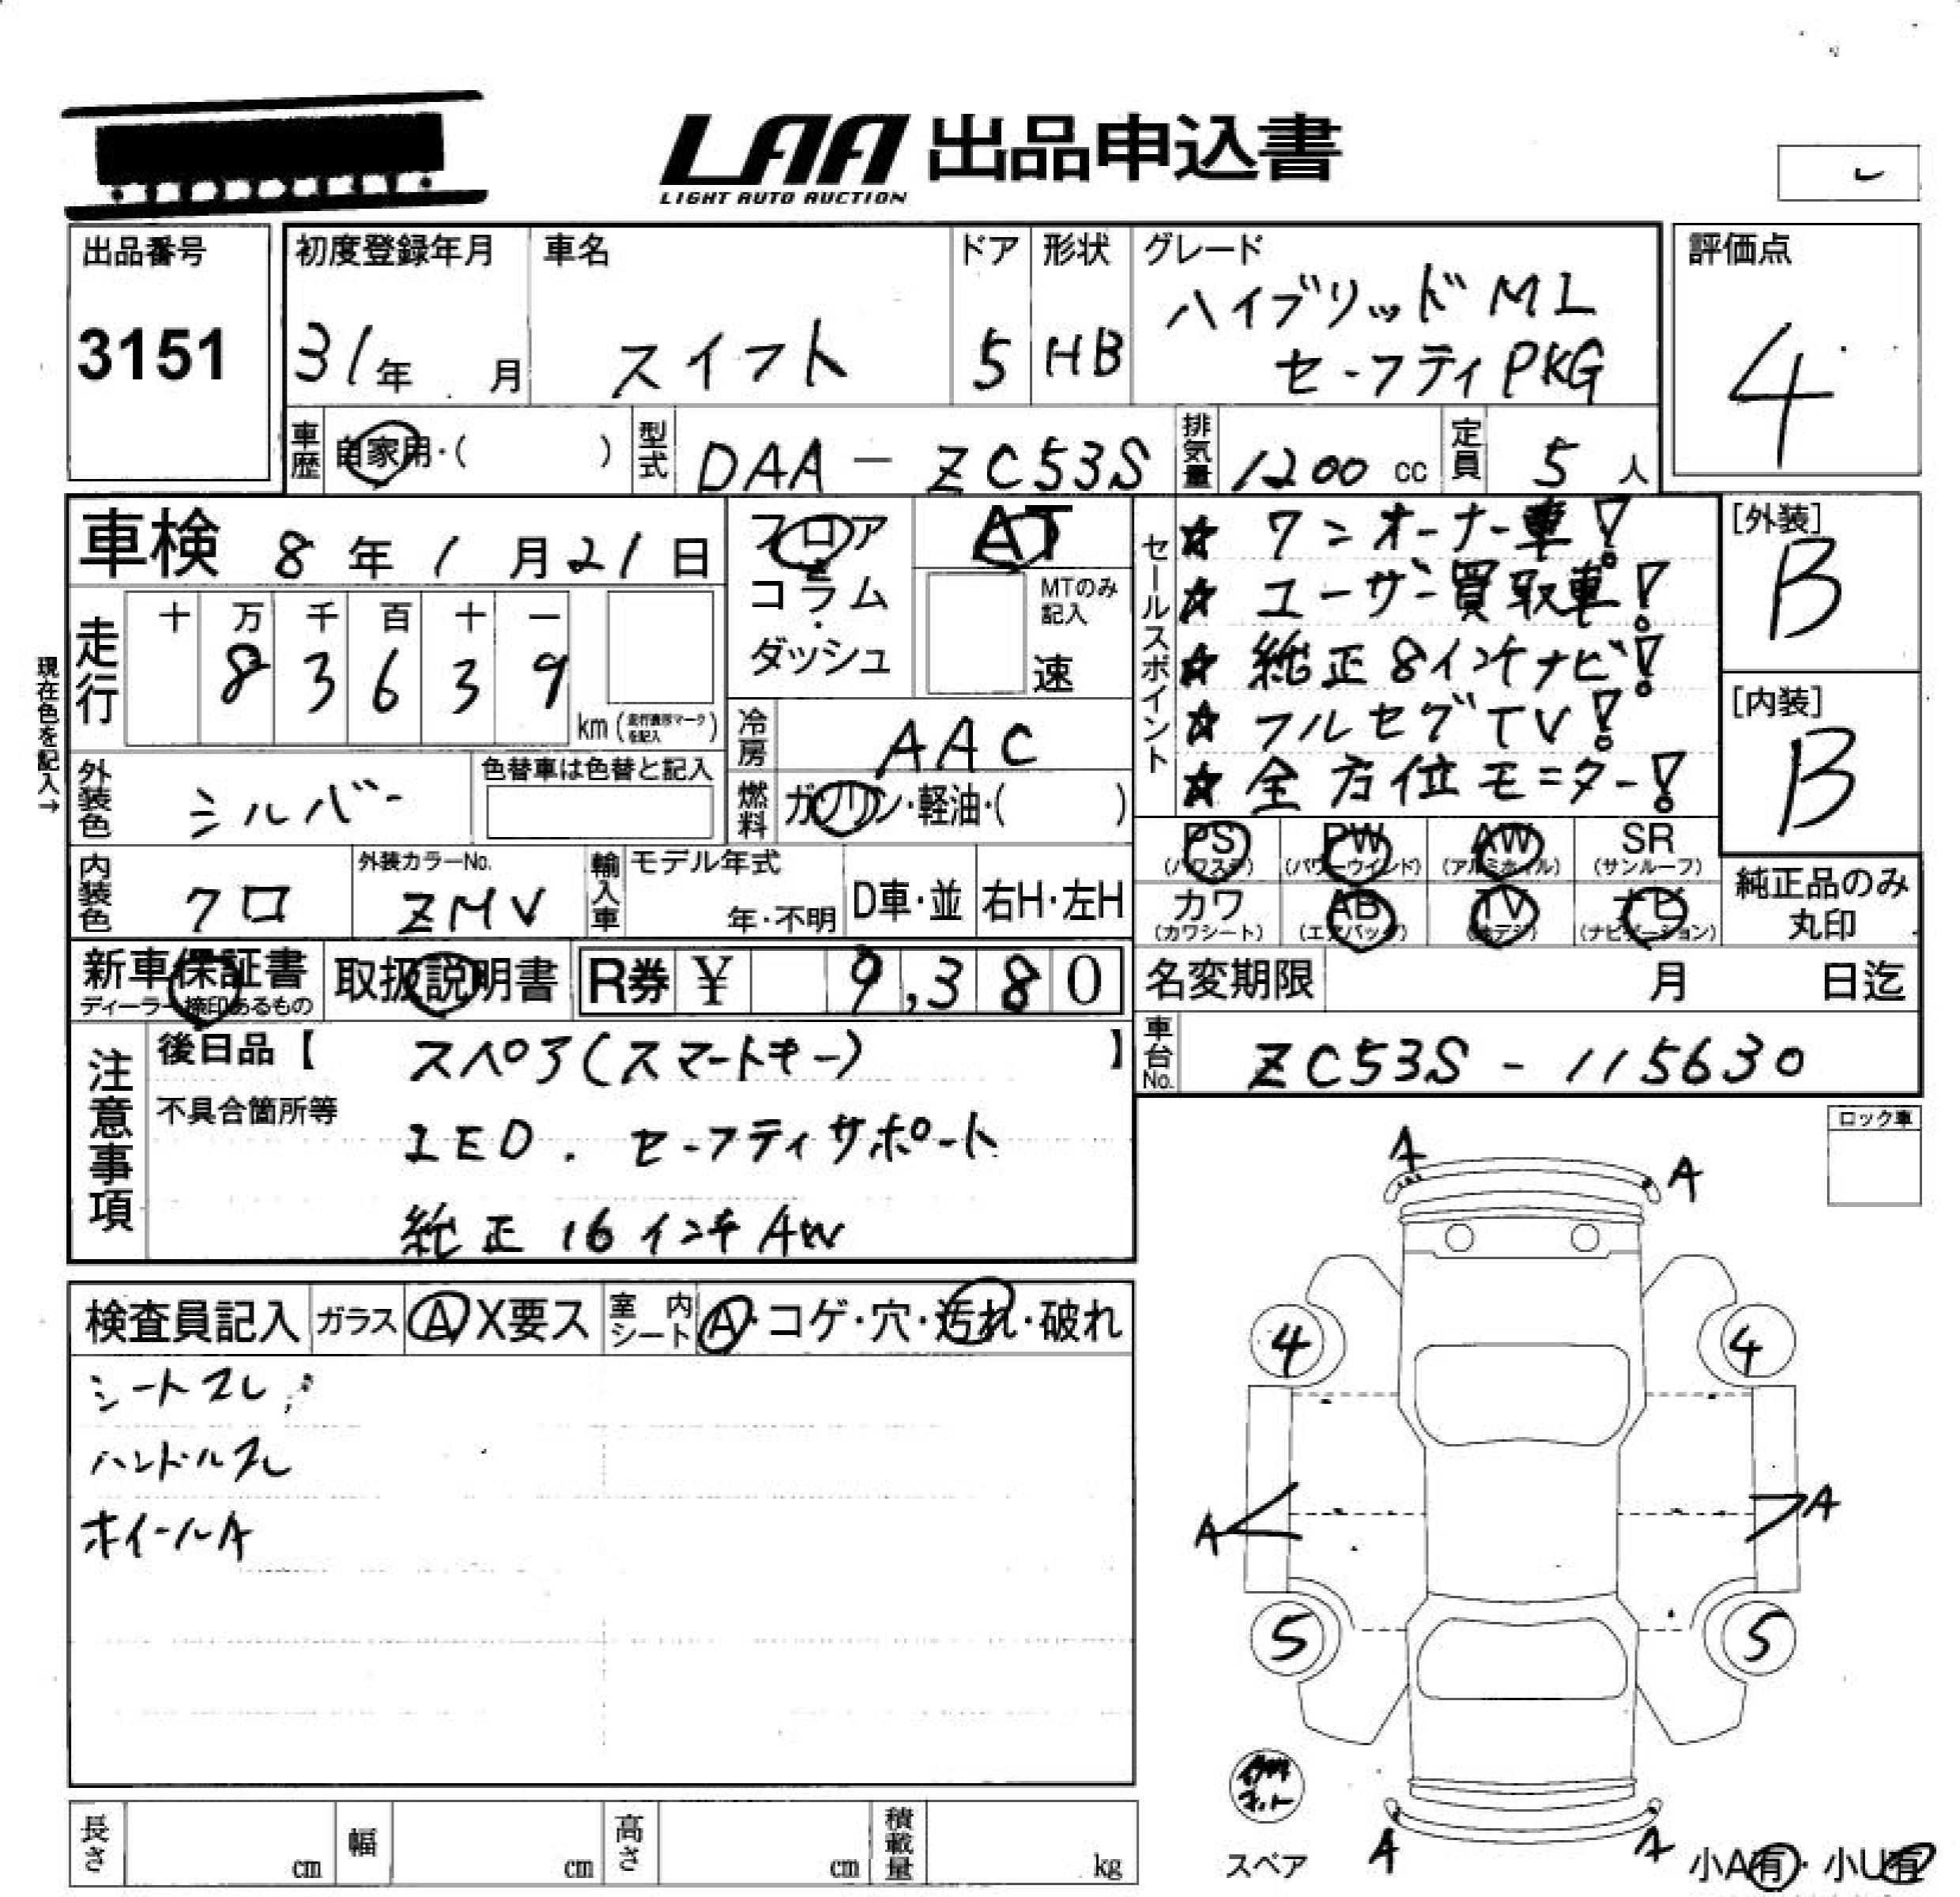 LAA 出品申込書
LIGHT AUTO AUCTION
出品番号
3151
初度登録年月
31年 月
車名
スイフト
ドア
5
形状
HB
グレード
ハイブリッド ML
セーフティ PKG
評価点
4
車歴 自家用・( )
型式 DAA - ZC53S
排気量 1200 cc
定員 5 人
車検 8年 1月 21日
フロア
コラム
ダッシュ
AT
MTのみ記入
速
走行
十 万 千 百 十 一
8 3 6 3 9
km
現在色を記入→
冷房 AAC
燃料 ガソリン・軽油・( )
外装色 シルバー
色替車は色替と記入
内装色 クロ
外装カラーNo.
ZMV
輸入車
モデル年式
年・不明
D車・並
右H・左H
セールスポイント
☆ ワンオーナー車!
☆ ユーザー買取車!
☆ 純正8インチナビ!
☆ フルセグTV!
☆ 全方位モニター!
[外装]
B
[内装]
B
PS (パワステ) PW (パワーウインド) AW (アルミホイル) SR (サンルーフ)
カワ (カワシート) AB (エアバッグ) TV ナビ (ナビゲーション)
純正品のみ
丸印
新車保証書
ディーラー捺印あるもの
取扱説明書
R券 ¥ 9,380
名変期限 月 日迄
車台No. ZC53S - 115630
注意事項
後日品【 スペア(スマートキー) 】
不具合箇所等
LED. セーフティサポート
純正 16インチ AW
検査員記入 ガラス A X要ス 室内シート A・コゲ・穴・汚れ・破れ
シートスレ
ハンドルスレ
ホイールA
ロック車
A A
4 4
A A
5 5
スペア
A A
小A有・小U有
長さ cm 幅 cm 高さ cm 積載量 kg